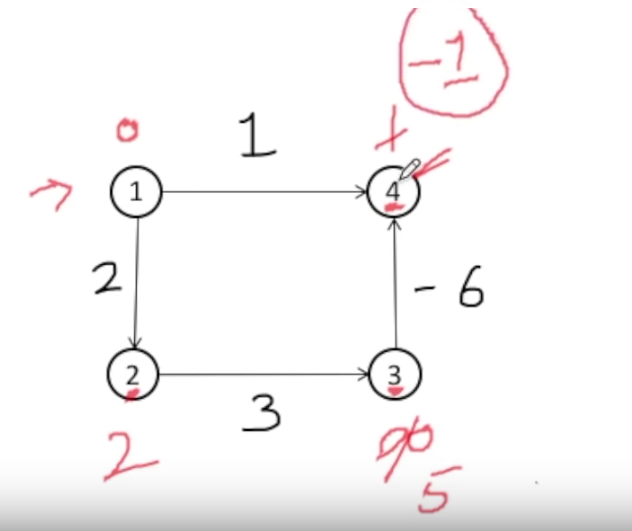 -1
0
1
1
1
4
2
-6
2
3
3
2
5